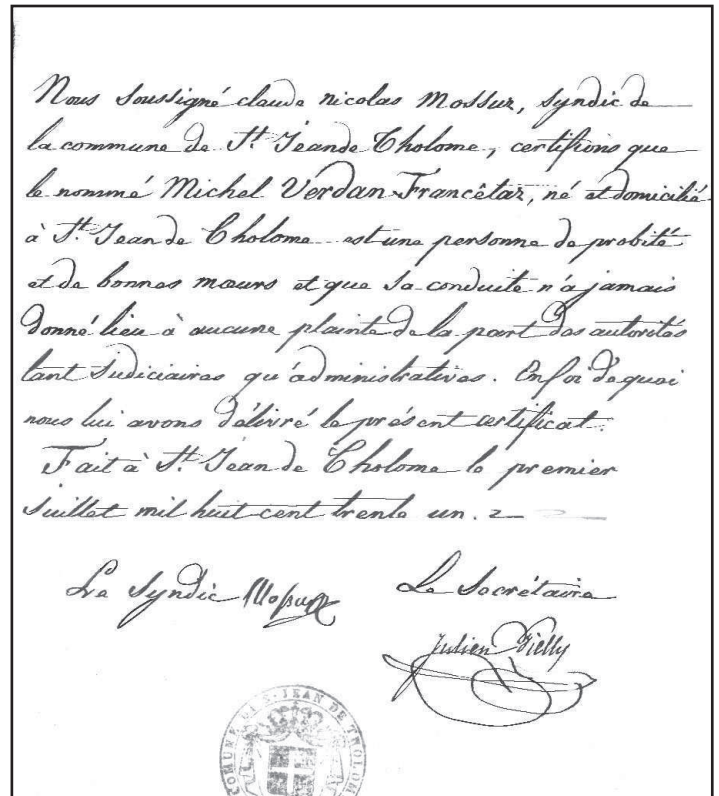 Nous soussigné claude nicolas Mossuz, syndic de
la commune de St. Jean de Tholome, certifions que
le nommé Michel Verdan-Francêtaz, né et domicilié
à St. Jean de Tholome est une personne de probité
et de bonnes mœurs et que sa conduite n'a jamais
donné lieu à aucune plainte de la part des autorités
tant Judiciaires qu'administratives. En foi de quoi
nous lui avons délivré le présent certificat.
Fait à St. Jean de Tholome le premier
Juillet mil huit cent trente un.
Le Syndic Mossuz
Le Secrétaire
Julien Vielly
COMUNE DI S. JEAN DE THOLOM